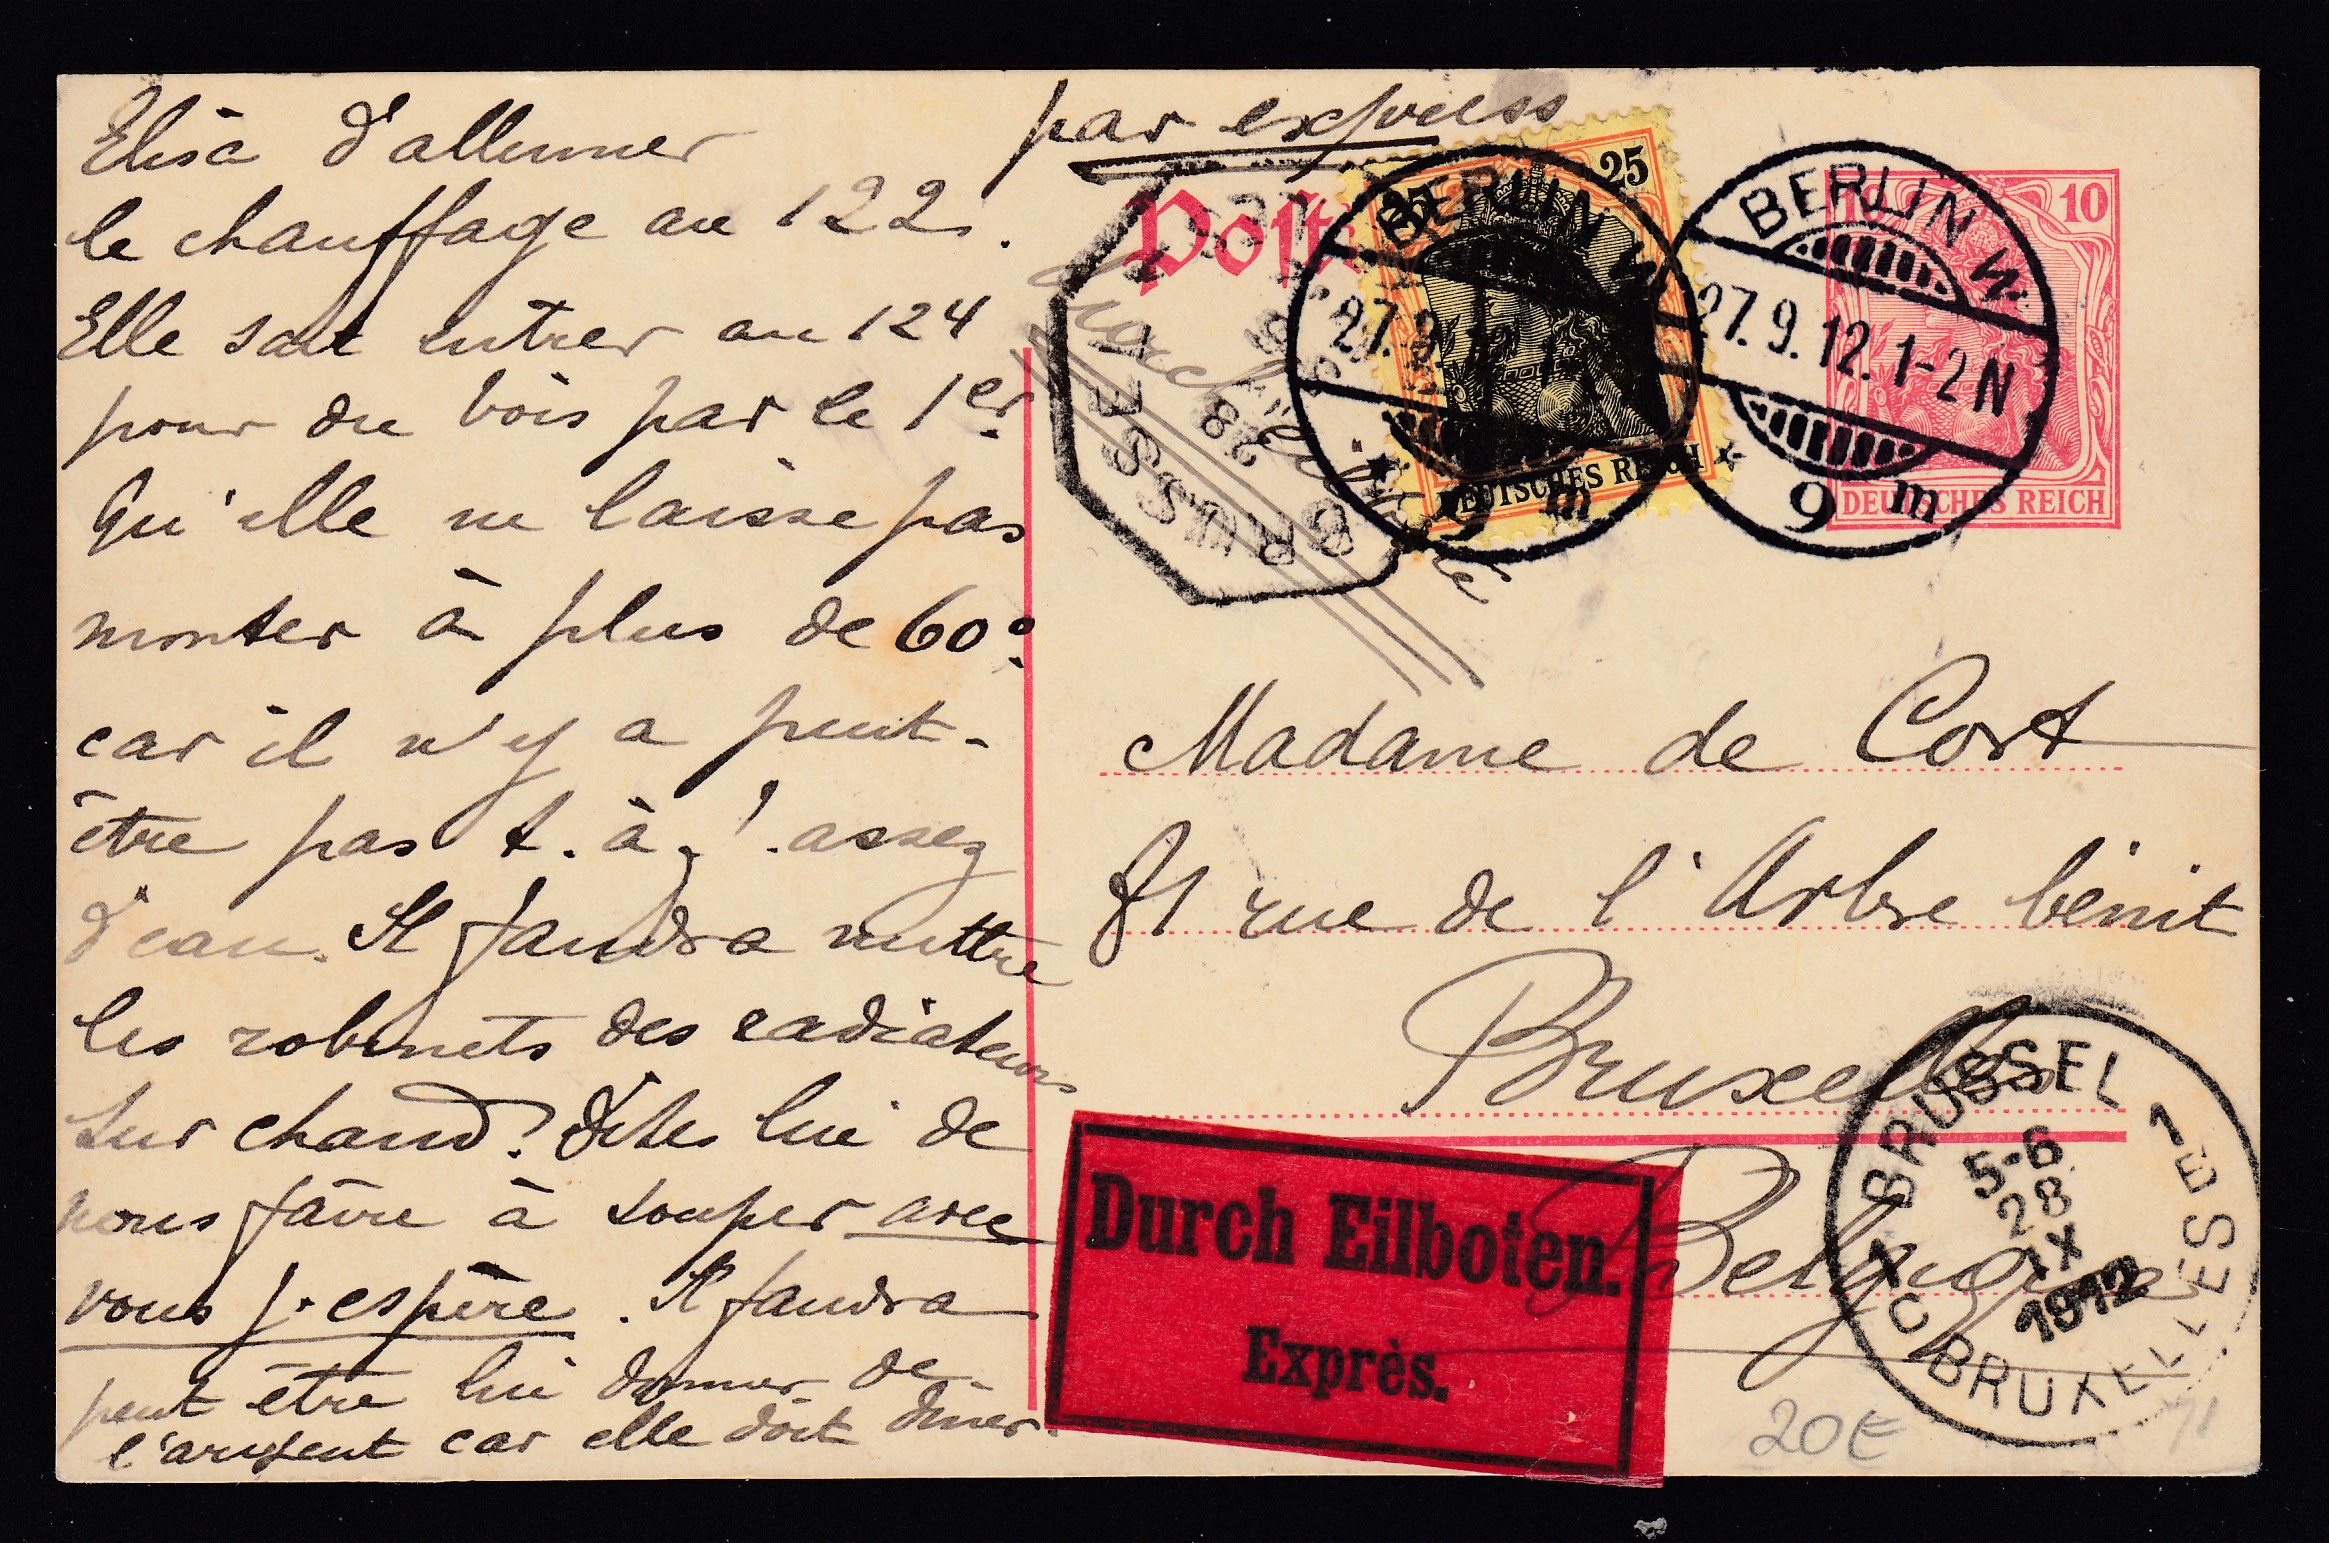 Elisa d'allumer
le chauffage au 122.
Elle sait entrer au 124
pour du bois par le 1er.
Qu'elle ne laisse pas
monter à plus de 60°.
car il n'y a peut-
être pas t. à. f. assez
d'eau. Il faudra mettre
les robinets des radiateurs
sur chaud? Dites lui de
nous faire à souper avec
vous j'espère. Il faudra
peut être lui donner de
l'argent car elle doit dîner.
par express
Postk
25 25
DEUTSCHES REICH
BERLIN W.
27.9.12
9 m
10 10
DEUTSCHES REICH
BERLIN W.
27.9.12.1-2N
9 m
BRUSSEL
28
Madame de Cort
71 rue de l'Arbre bénit
Bruxelles
Belgique
Durch Eilboten.
Exprès.
1 BRUSSEL 1
5-6
28
IX
1912
C BRUXELLES E
20€